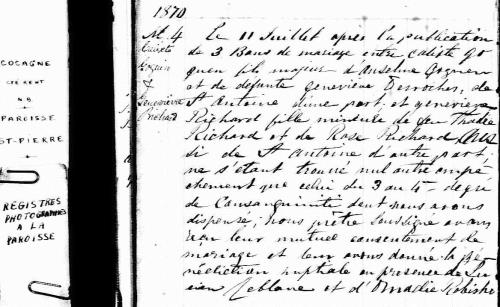 COCAGNE
CTÉ KENT
N B
PAROISSE
ST-PIERRE
REGISTRES
PHOTOGRAPHIÉS
A LA
PAROISSE
1870
M. 4
Calixte
Goguen
&
Geneviève
Richard
Le 11 Juillet après la publication
de 3 Bans de mariage entre Caliste Go
guen fils majeur d'Anselme Goguen
et de défunte Geneviève Desroches, de
St Antoine d'une part, et Geneviève
Richard fille mineure de feu Thadée
Richard et de Rose Richard Aus
si de St Antoine d'autre part,
ne s'étant trouvé nul autre empê
chement que celui du 3 au 4e degré
de Consanguinité dont nous avons
dispensé; nous prêtre Soussigné avons
reçu leur mutuel consentement de
mariage et leur avons donné la bé
nédiction nuptiale en présence de Lu
cien Leblanc et d'